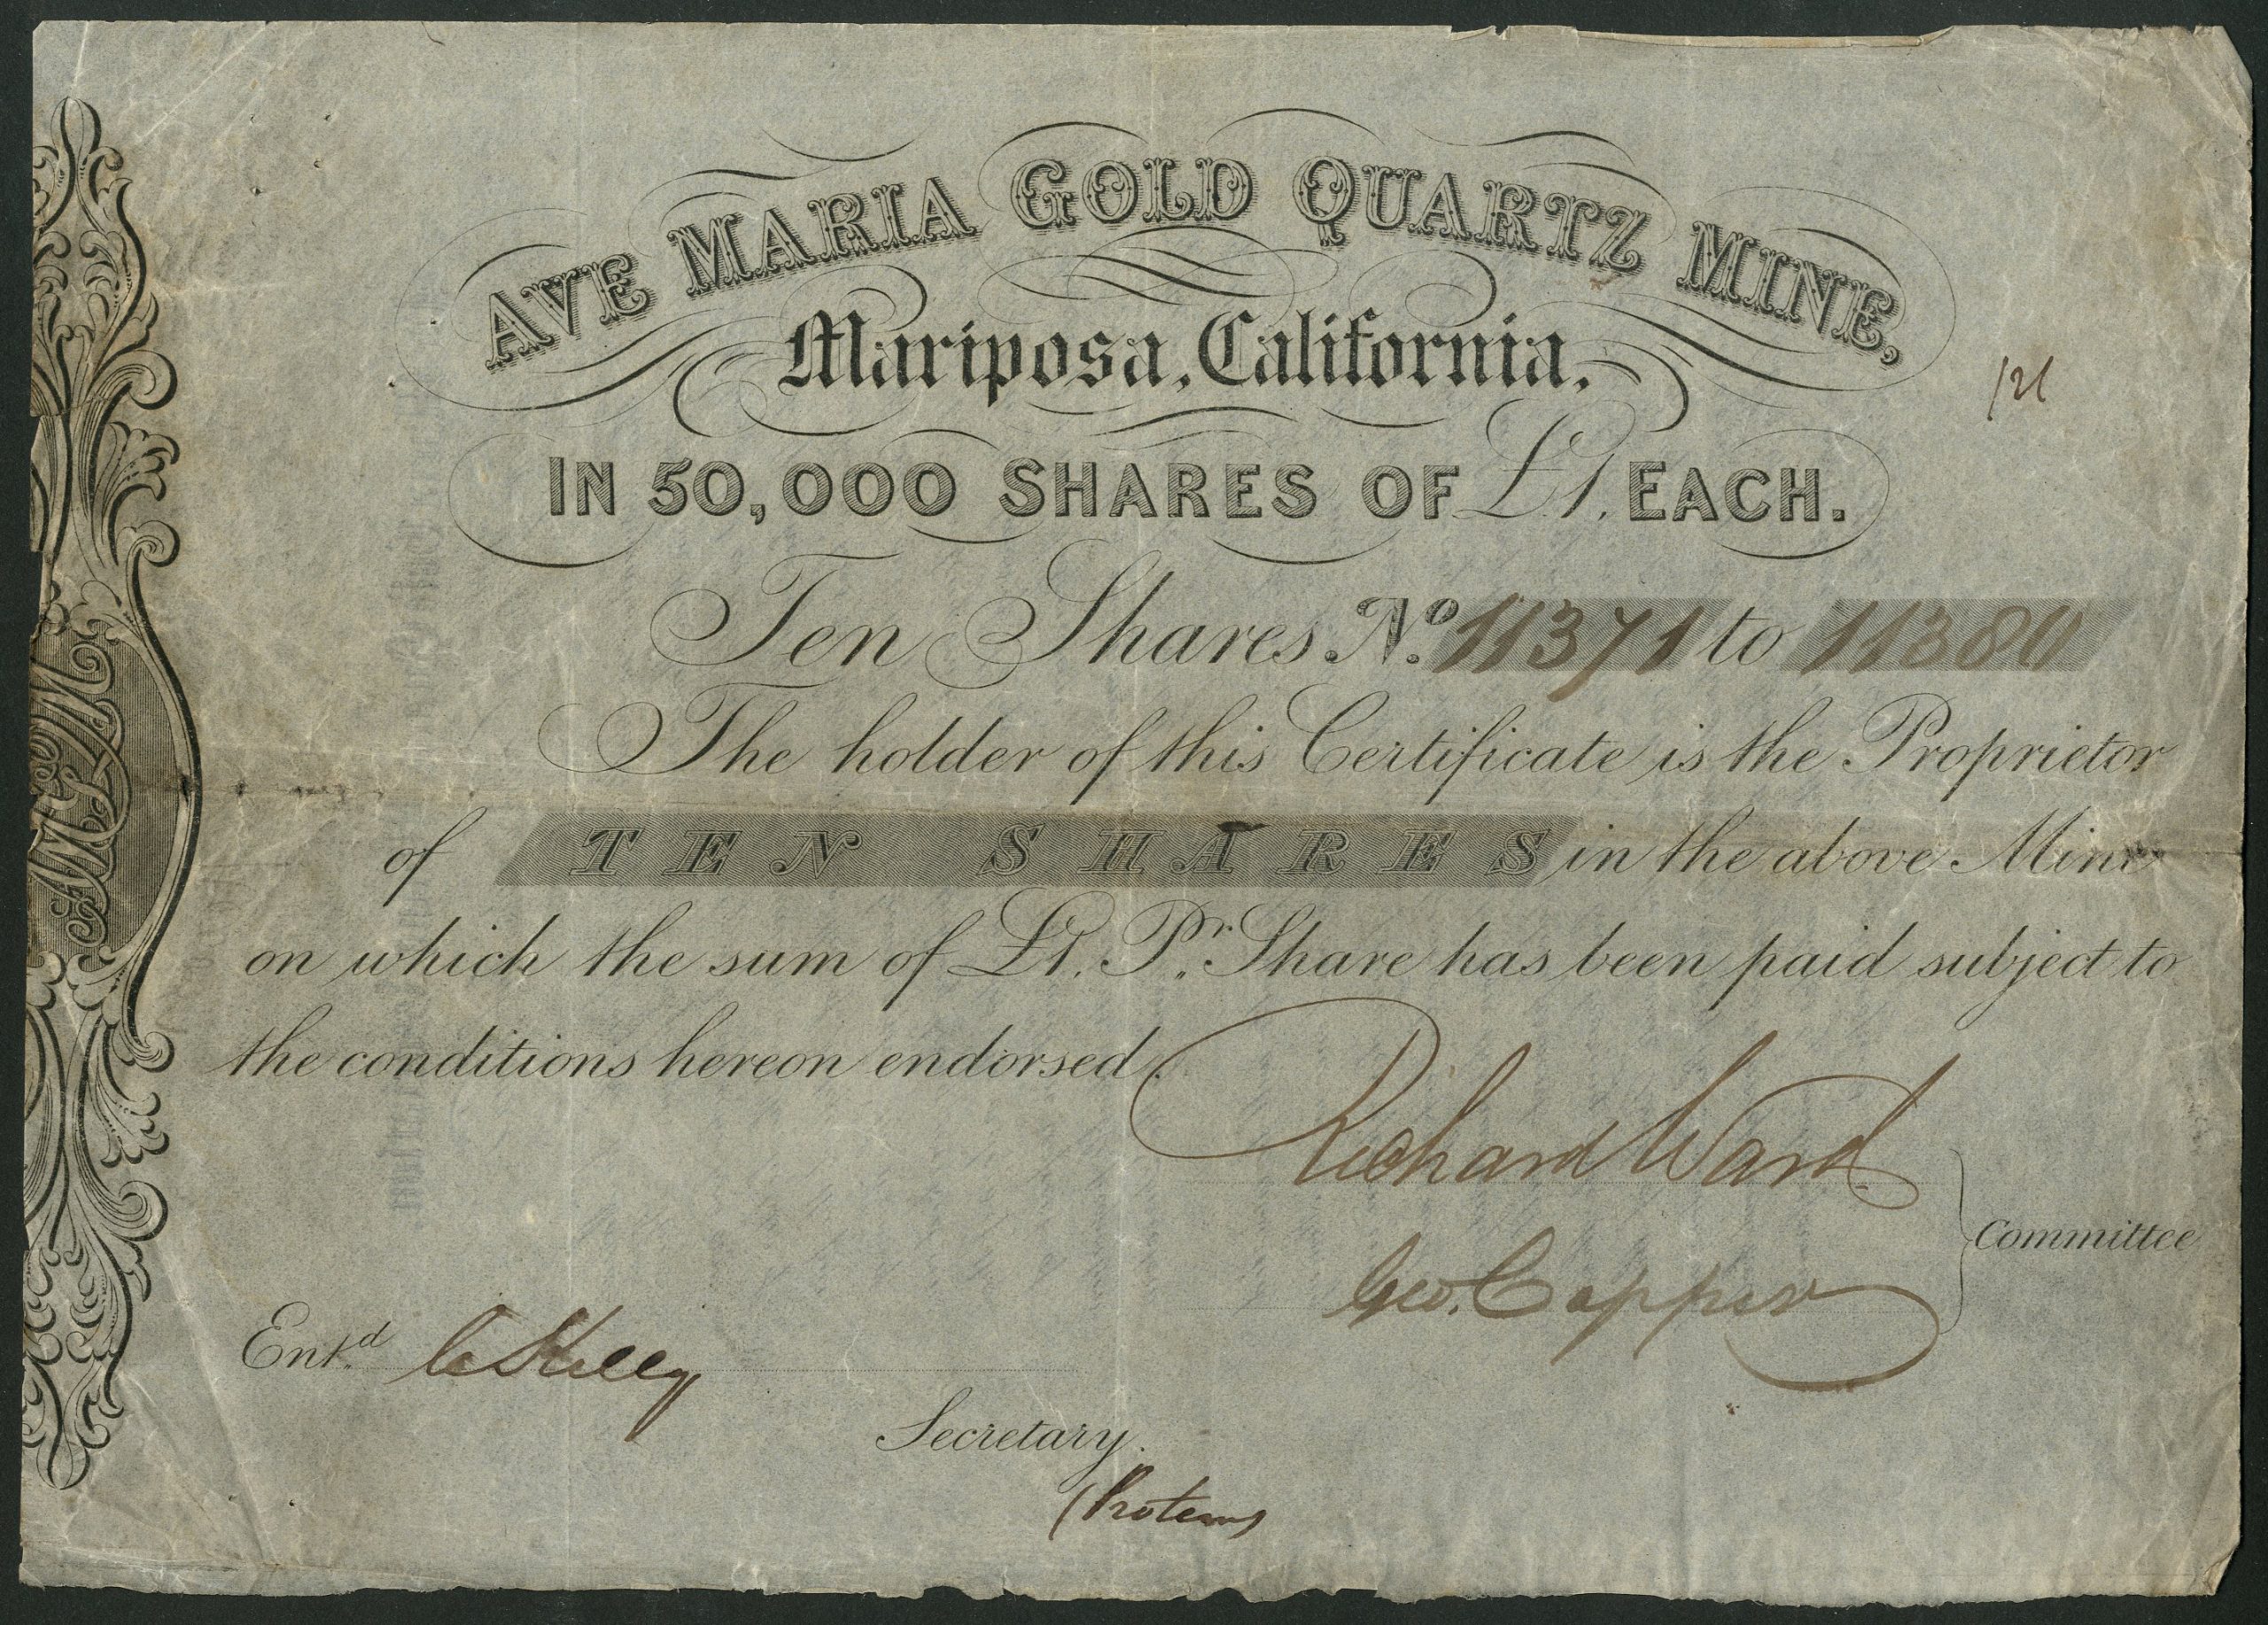 AVE MARIA GOLD QUARTZ MINE,
Mariposa, California.
121
IN 50,000 SHARES OF £1. EACH.
Ten Shares. No. 11371 to 11380
The holder of this Certificate is the Proprietor
of TEN SHARES in the above Mine
on which the sum of £1. Pr. Share has been paid subject to
the conditions hereon endorsed.
Richard Ward
Committee
Geo. Capper
Entd.
Secretary.
(Protem)